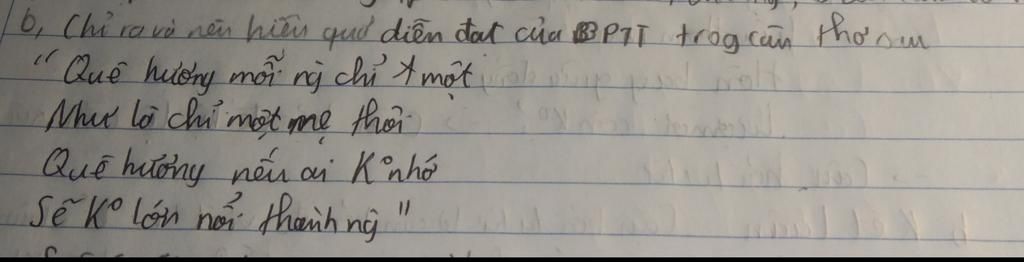 b, Chỉ ra và nêu hiệu quả diễn đạt của BPTT trog câu thơ sau
"Quê hương mỗi ng chỉ một
Như là chỉ một mẹ thôi
Quê hương nếu ai K° nhớ
Sẽ K° lớn nổi thành ng"